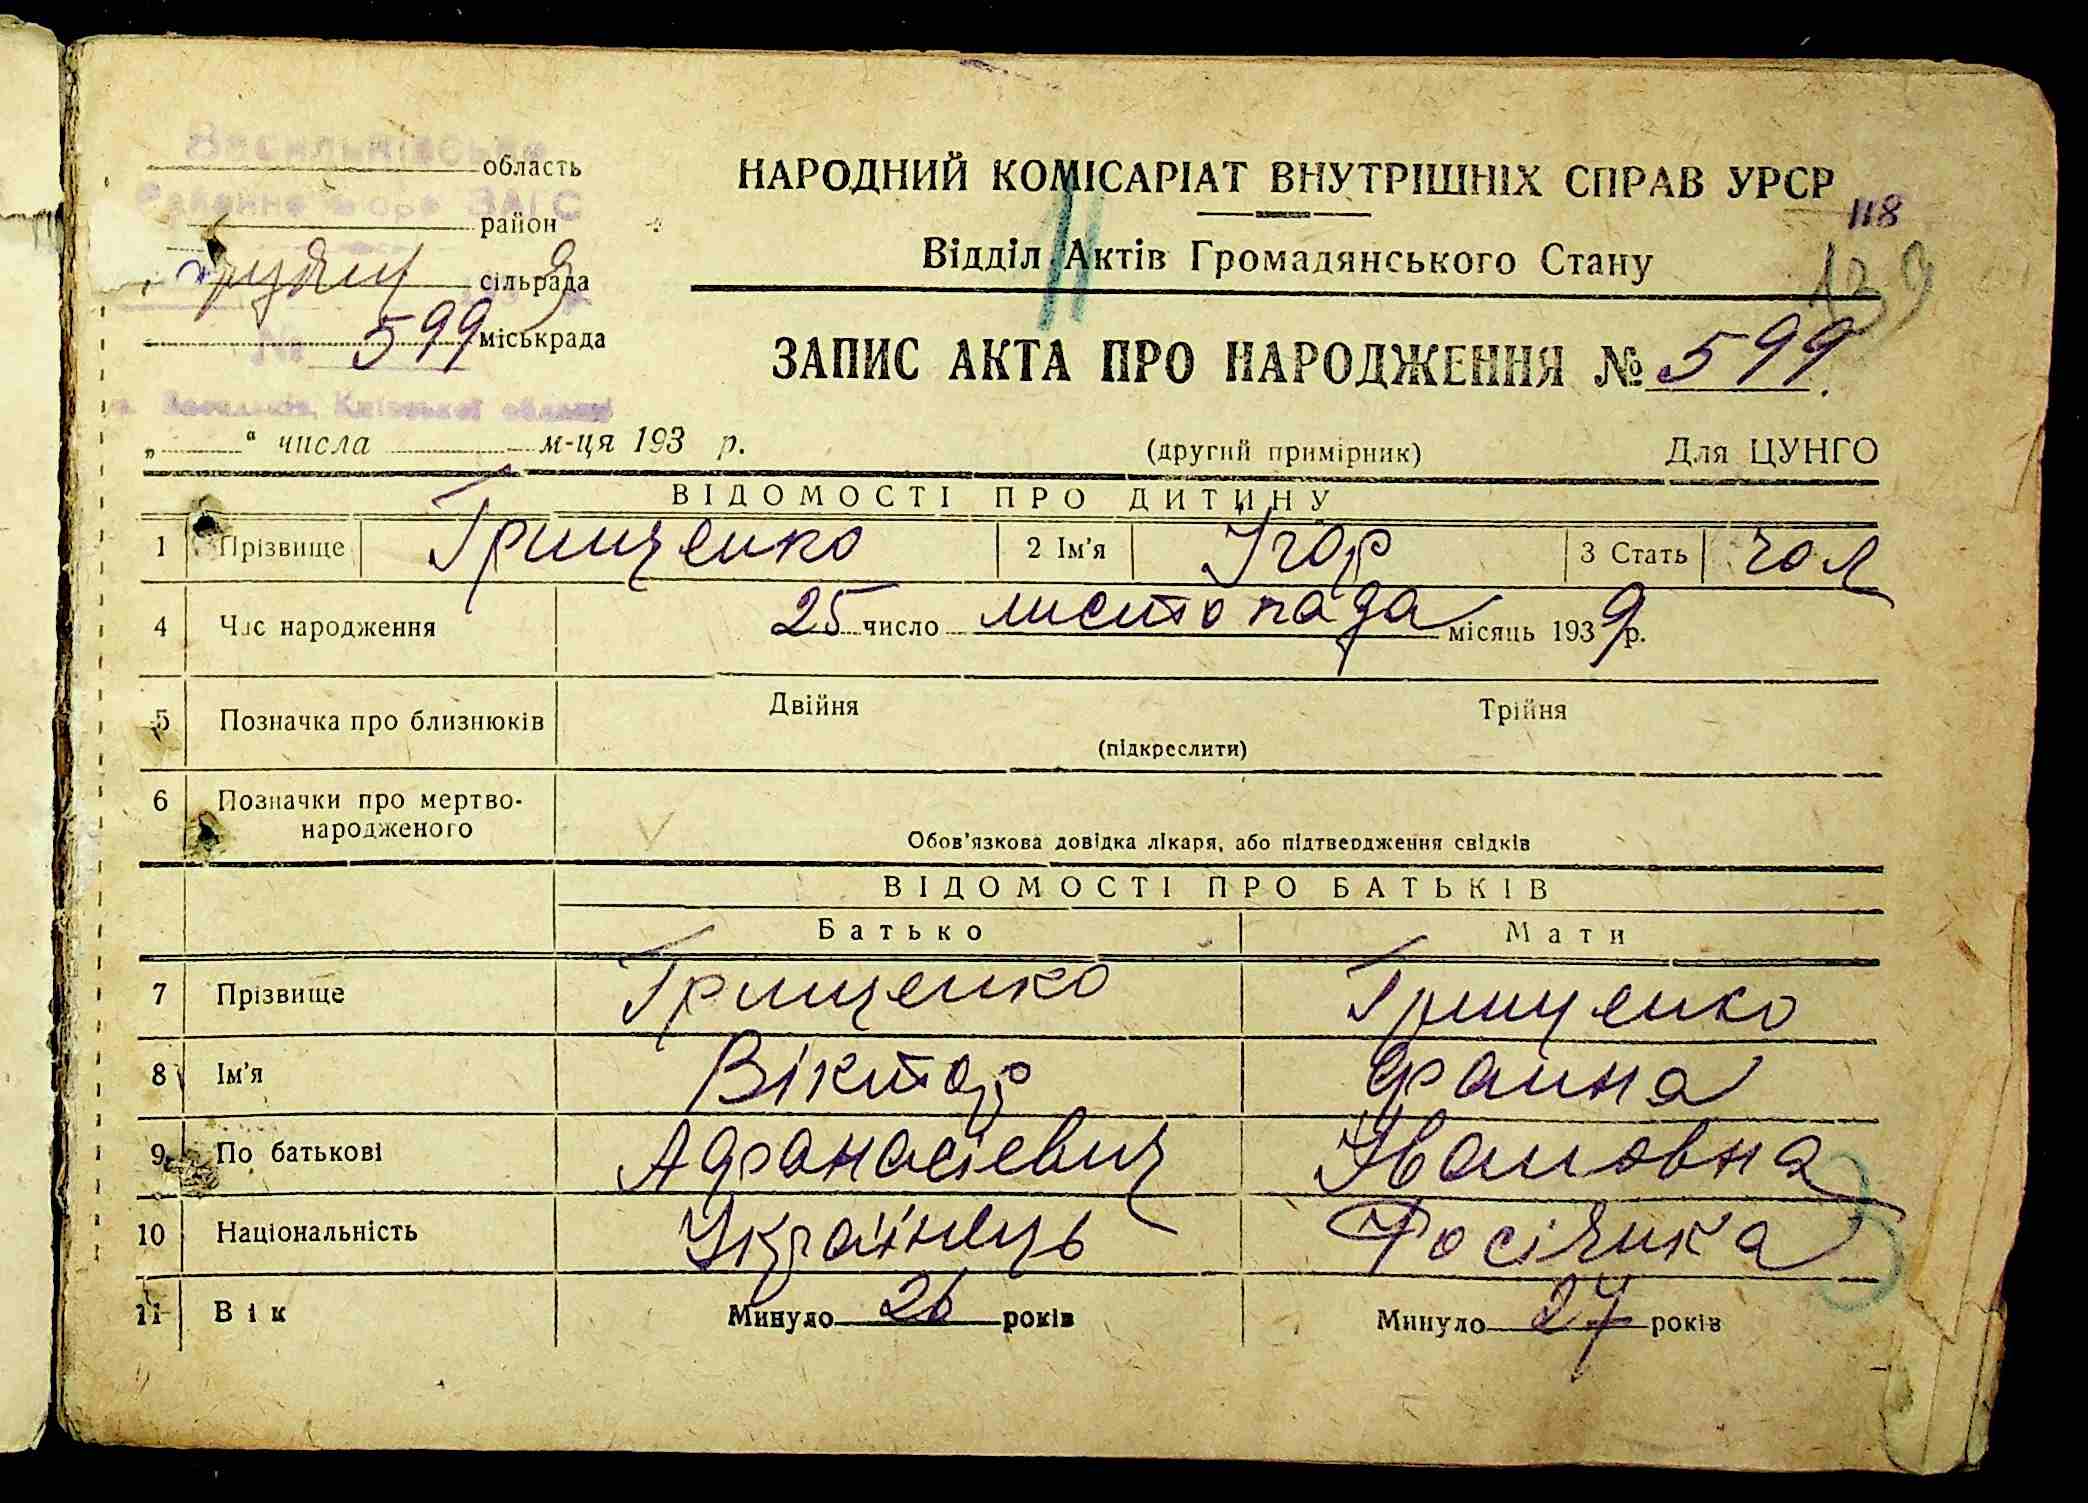 Васильківське
область
Районне бюро ЗАГС
район
сільрада
№ 599 міськрада
м. Васильків, Київської області
„ “ числа м-ця 193 р.
НАРОДНИЙ КОМІСАРІАТ ВНУТРІШНІХ СПРАВ УРСР
118
Відділ Актів Громадянського Стану
139
11
ЗАПИС АКТА ПРО НАРОДЖЕННЯ № 599.
(другий примірник) Для ЦУНГО
ВІДОМОСТІ ПРО ДИТИНУ
1 Прізвище Грищенко 2 Ім'я Ігор 3 Стать чол
4 Час народження 25 число листопада місяць 1939 р.
5 Позначка про близнюків Двійня Трійня
(підкреслити)
6 Позначки про мертво-
народженого
Обов'язкова довідка лікаря, або підтвердження свідків
ВІДОМОСТІ ПРО БАТЬКІВ
Батько Мати
7 Прізвище Грищенко Грищенко
8 Ім'я Віктор Фаина
9 По батькові Афанасієвич Івановна
10 Національність Українець Росіянка
11 Вік Минуло 26 років Минуло 27 років